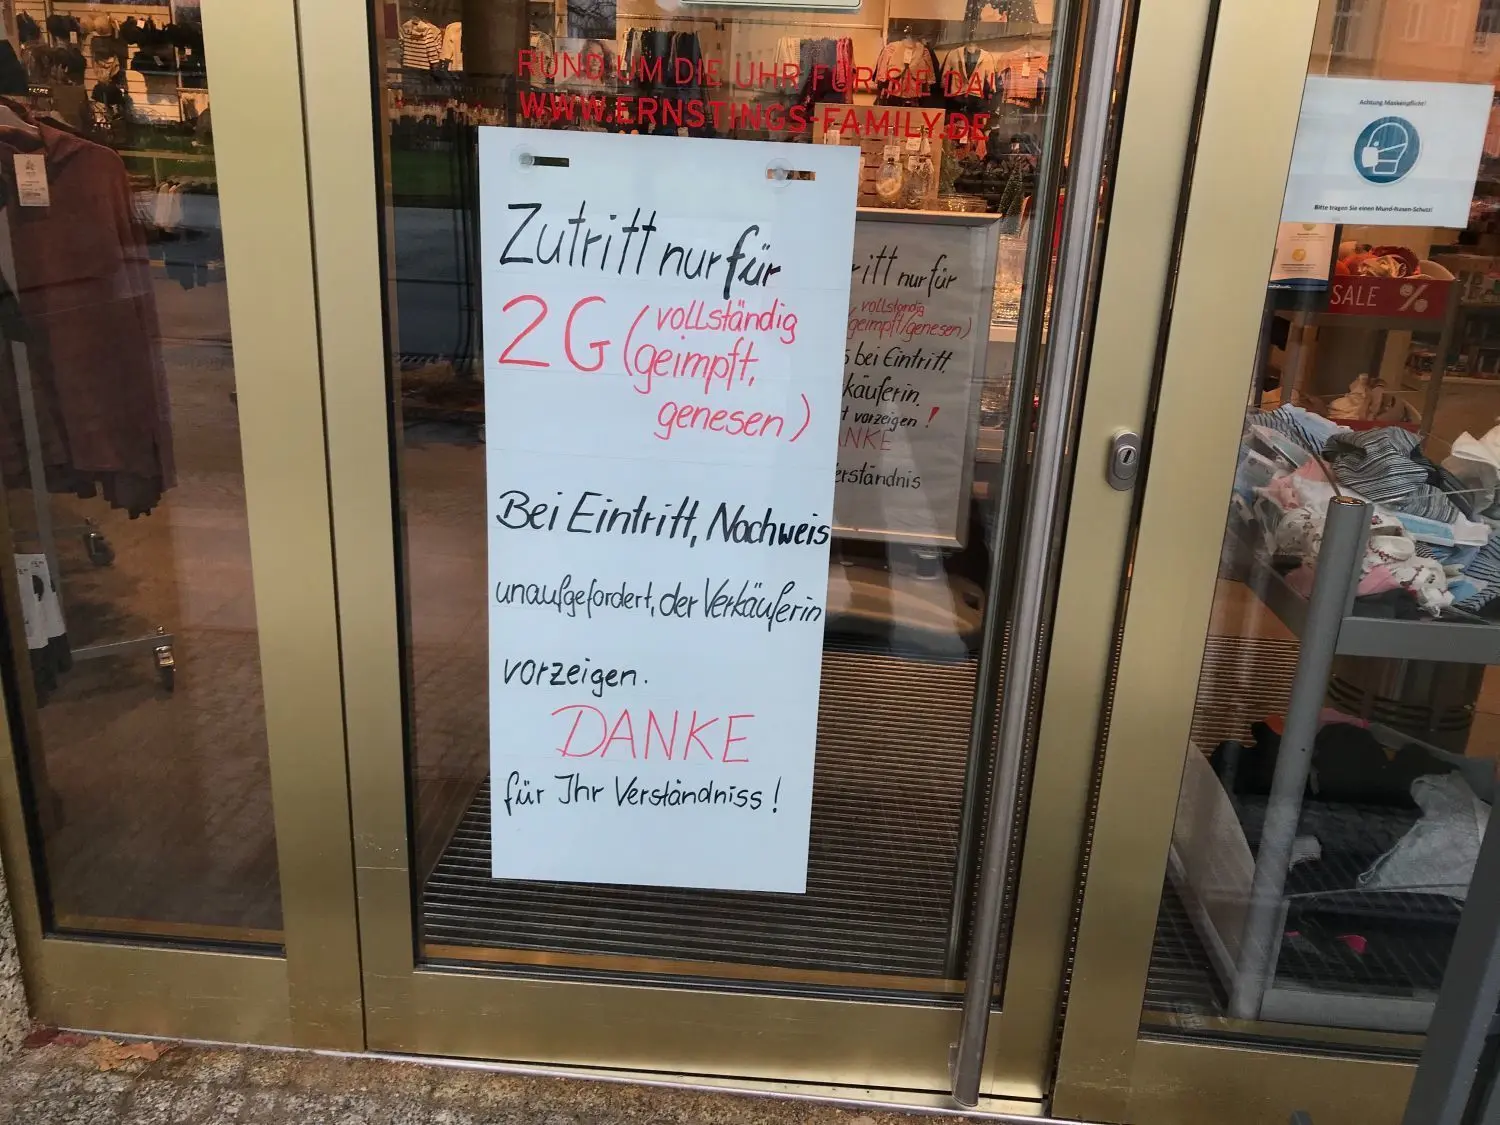 RUND UM DIE UHR FÜR SIE DA!
WWW.ERNSTINGS-FAMILY.DE
Zutritt nur für
2G (vollständig
geimpft,
genesen)
Bei Eintritt, Nachweis
unaufgefordert, der Verkäuferin
vorzeigen.
DANKE
für Ihr Verständniss!
nur für
vollständig
geimpft/genesen)
bei Eintritt,
vorzeigen!
Achtung Maskenpflicht!
Bitte tragen Sie einen Mund-Nasen-Schutz!
SALE %